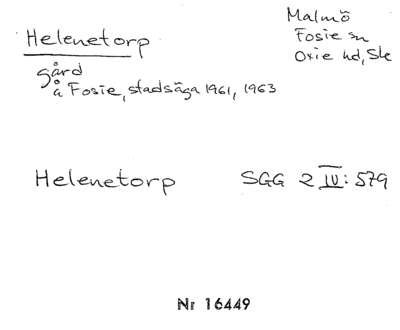 Helenetorp
gård
å Fosie, stadsäga 1961, 1963
Malmö
Fosie sn
Oxie hd, Sk
Helenetorp SGG 2 IV: 579
Nr 16449